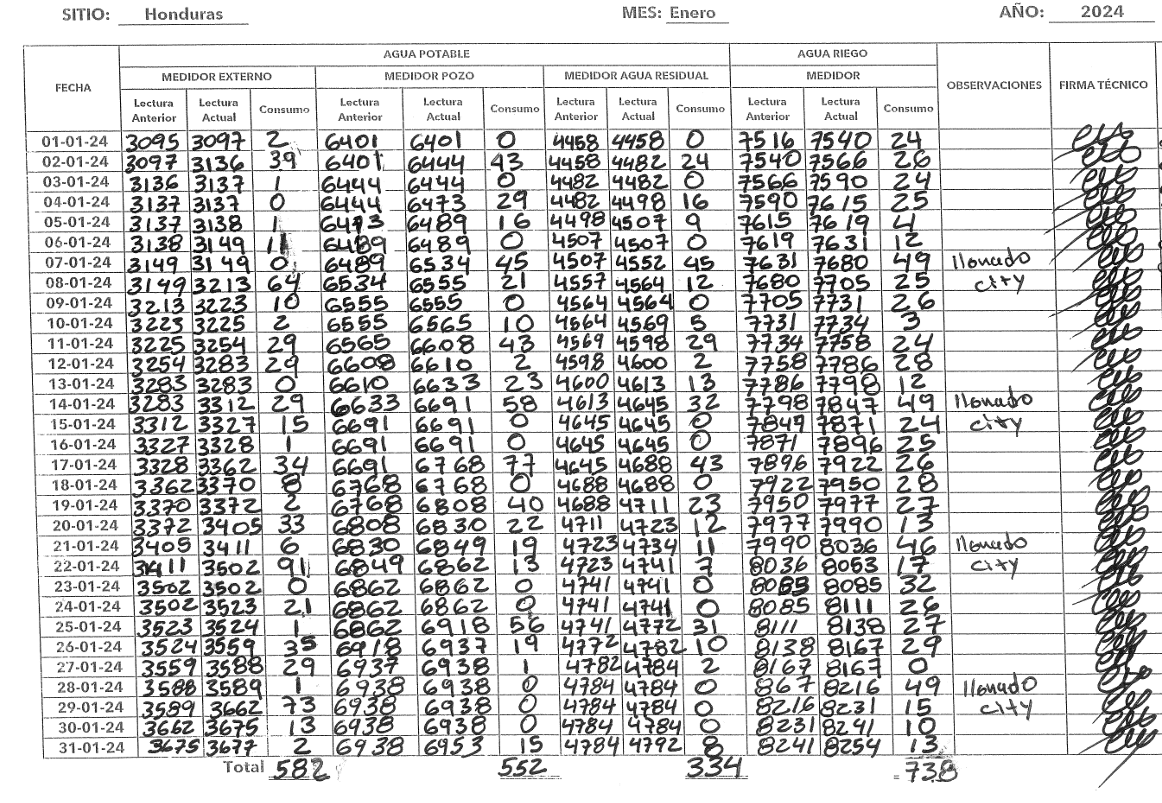 SITIO: Honduras MES: Enero AÑO: 2024
AGUA POTABLE AGUA RIEGO
FECHA MEDIDOR EXTERNO MEDIDOR POZO MEDIDOR AGUA RESIDUAL MEDIDOR OBSERVACIONES FIRMA TÉCNICO
Lectura Anterior Lectura Actual Consumo Lectura Anterior Lectura Actual Consumo Lectura Anterior Lectura Actual Consumo Lectura Anterior Lectura Actual Consumo
01-01-24 3095 3097 2 6401 6401 0 4458 4458 0 7516 7540 24
02-01-24 3097 3136 39 6401 6444 43 4458 4482 24 7540 7566 26
03-01-24 3136 3137 1 6444 6444 0 4482 4482 0 7566 7590 24
04-01-24 3137 3137 0 6444 6473 29 4482 4498 16 7590 7615 25
05-01-24 3137 3138 1 6473 6489 16 4498 4507 9 7615 7619 4
06-01-24 3138 3149 11 6489 6489 0 4507 4507 0 7619 7631 12
07-01-24 3149 3149 0 6489 6534 45 4507 4552 45 7631 7680 49 llenado
08-01-24 3149 3213 64 6534 6555 21 4557 4564 12 7680 7705 25 city
09-01-24 3213 3223 10 6555 6555 0 4564 4564 0 7705 7731 26
10-01-24 3223 3225 2 6555 6565 10 4564 4569 5 7731 7734 3
11-01-24 3225 3254 29 6565 6608 43 4569 4598 29 7734 7758 24
12-01-24 3254 3283 29 6608 6610 2 4598 4600 2 7758 7786 28
13-01-24 3283 3283 0 6610 6633 23 4600 4613 13 7786 7798 12
14-01-24 3283 3312 29 6633 6691 58 4613 4645 32 7798 7847 49 llenado
15-01-24 3312 3327 15 6691 6691 0 4645 4645 0 7847 7871 24 city
16-01-24 3327 3328 1 6691 6691 0 4645 4645 0 7871 7896 25
17-01-24 3328 3362 34 6691 6768 77 4645 4688 43 7896 7922 26
18-01-24 3362 3370 8 6768 6768 0 4688 4688 0 7922 7950 28
19-01-24 3370 3372 2 6768 6808 40 4688 4711 23 7950 7977 27
20-01-24 3372 3405 33 6808 6830 22 4711 4723 12 7977 7990 13
21-01-24 3405 3411 6 6830 6849 19 4723 4734 11 7990 8036 46 llenado
22-01-24 3411 3502 91 6849 6862 13 4723 4741 7 8036 8053 17 city
23-01-24 3502 3502 0 6862 6862 0 4741 4741 0 8085 32
24-01-24 3502 3523 21 6862 6862 0 4741 4741 0 8085 8111 26
25-01-24 3523 3524 1 6862 6918 56 4741 4772 31 8111 8138 27
26-01-24 3524 3559 35 6918 6937 19 4772 4782 10 8138 8167 29
27-01-24 3559 3588 29 6937 6938 1 4782 4784 2 8167 8167 0
28-01-24 3588 3589 1 6938 6938 0 4784 4784 0 867 8216 49 llenado
29-01-24 3589 3662 73 6938 6938 0 4784 4784 0 8216 8231 15 city
30-01-24 3662 3675 13 6938 6938 0 4784 4784 0 8231 8241 10
31-01-24 3675 3677 2 6938 6953 15 4784 4792 8 8241 8254 13
Total 582 552 334 738